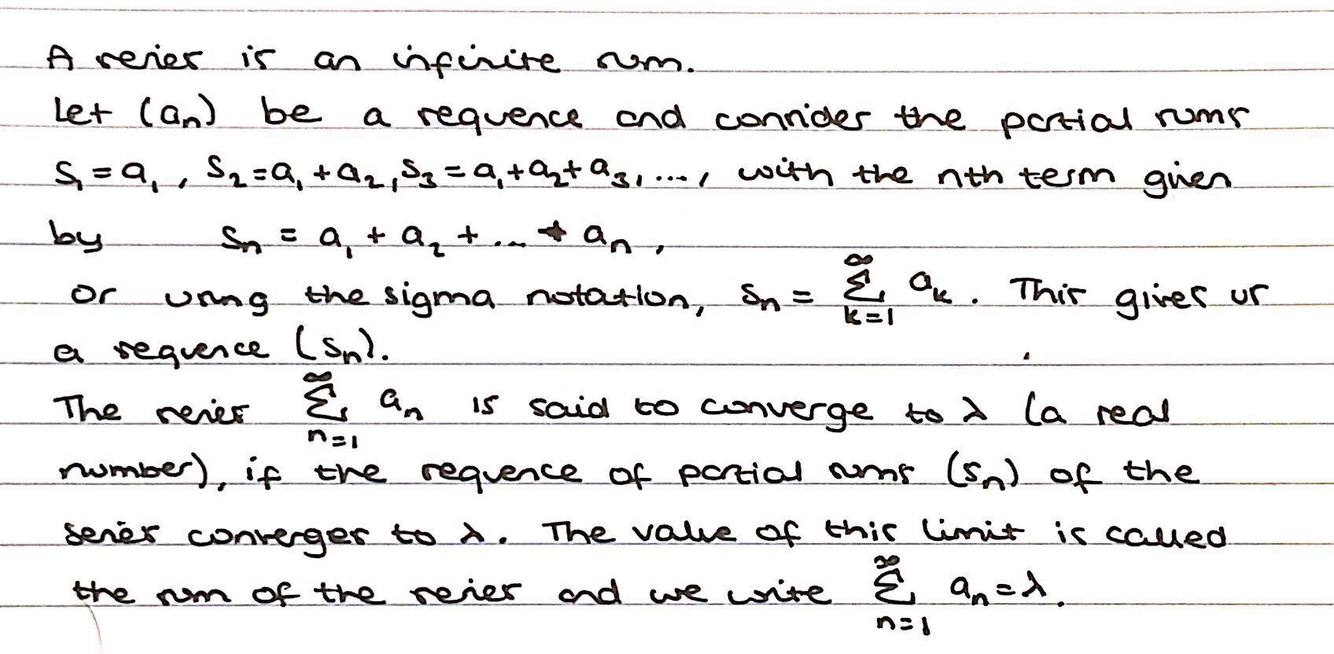 A series is an infinite sum.
Let (aₙ) be a sequence and consider the partial sums
S₁ = a₁, S₂ = a₁ + a₂, S₃ = a₁ + a₂ + a₃, ..., with the nth term given
by Sₙ = a₁ + a₂ + ... + aₙ,
or using the sigma notation, Sₙ = ∑_{k=1}^{∞} aₖ. This gives us
a sequence (Sₙ).
The series ∑_{n=1}^{∞} aₙ is said to converge to λ (a real
number), if the sequence of partial sums (Sₙ) of the
series converges to λ. The value of this limit is called
the sum of the series and we write ∑_{n=1}^{∞} aₙ = λ.